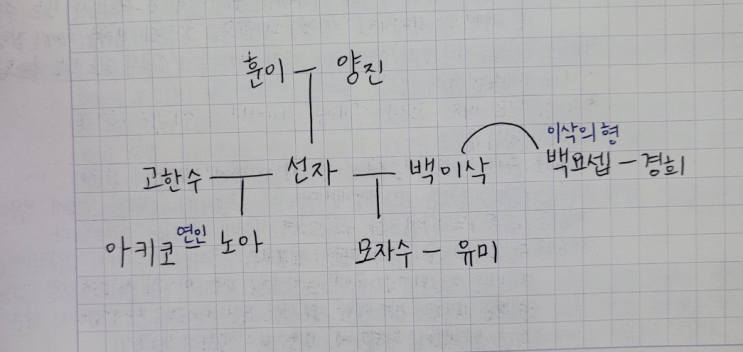 훈이 - 양진
이삭의 형
고한수 선자 백이삭 백요셉 - 경희
연인
아키코 노아 모자수 - 유미